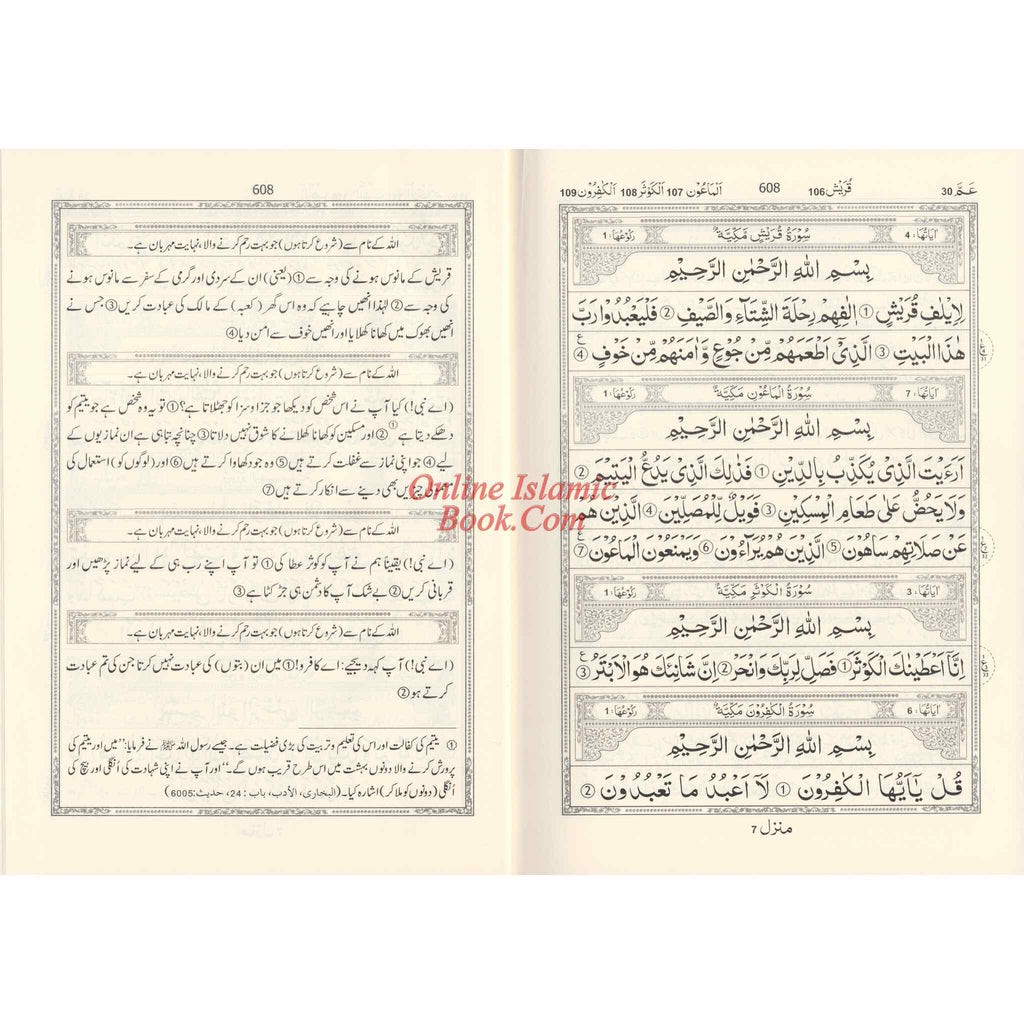 عَمَّ 30 قُرَيْش 106 608 اَلْمَاعُوْن 107 اَلْكَوْثَر 108 اَلْكٰفِرُوْن 109
اٰيَاتُهَا: 4 سُوْرَةُ قُرَيْشٍ مَكِّيَّةٌ رُكُوْعُهَا: 1
بِسْمِ اللّٰهِ الرَّحْمٰنِ الرَّحِيْمِ
لِاِيْلٰفِ قُرَيْشٍ ① اٖلٰفِهِمْ رِحْلَةَ الشِّتَآءِ وَالصَّيْفِ ② فَلْيَعْبُدُوْا رَبَّ
هٰذَا الْبَيْتِ ③ الَّذِيْٓ اَطْعَمَهُمْ مِّنْ جُوْعٍ وَّاٰمَنَهُمْ مِّنْ خَوْفٍ ④
اٰيَاتُهَا: 7 سُوْرَةُ الْمَاعُوْنِ مَكِّيَّةٌ رُكُوْعُهَا: 1
بِسْمِ اللّٰهِ الرَّحْمٰنِ الرَّحِيْمِ
اَرَءَيْتَ الَّذِيْ يُكَذِّبُ بِالدِّيْنِ ① فَذٰلِكَ الَّذِيْ يَدُعُّ الْيَتِيْمَ ②
وَلَا يَحُضُّ عَلٰى طَعَامِ الْمِسْكِيْنِ ③ فَوَيْلٌ لِّلْمُصَلِّيْنَ ④ الَّذِيْنَ هُمْ
عَنْ صَلَاتِهِمْ سَاهُوْنَ ⑤ الَّذِيْنَ هُمْ يُرَآءُوْنَ ⑥ وَيَمْنَعُوْنَ الْمَاعُوْنَ ⑦
اٰيَاتُهَا: 3 سُوْرَةُ الْكَوْثَرِ مَكِّيَّةٌ رُكُوْعُهَا: 1
بِسْمِ اللّٰهِ الرَّحْمٰنِ الرَّحِيْمِ
اِنَّآ اَعْطَيْنٰكَ الْكَوْثَرَ ① فَصَلِّ لِرَبِّكَ وَانْحَرْ ② اِنَّ شَانِئَكَ هُوَ الْاَبْتَرُ ③
اٰيَاتُهَا: 6 سُوْرَةُ الْكٰفِرُوْنَ مَكِّيَّةٌ رُكُوْعُهَا: 1
بِسْمِ اللّٰهِ الرَّحْمٰنِ الرَّحِيْمِ
قُلْ يٰٓاَيُّهَا الْكٰفِرُوْنَ ① لَآ اَعْبُدُ مَا تَعْبُدُوْنَ ②
منزل 7
608
اللہ کے نام سے (شروع کرتا ہوں) جو بہت رحم کرنے والا، نہایت مہربان ہے۔
قریش کے مانوس ہونے کی وجہ سے① (یعنی) ان کے سردی اور گرمی کے سفر سے مانوس ہونے
کی وجہ سے② لہٰذا انھیں چاہیے کہ وہ اس گھر (کعبہ) کے مالک کی عبادت کریں③ جس نے
انھیں بھوک میں کھانا کھلایا اور انھیں خوف سے امن دیا④
اللہ کے نام سے (شروع کرتا ہوں) جو بہت رحم کرنے والا، نہایت مہربان ہے۔
(اے نبی!) کیا آپ نے اس شخص کو دیکھا جو جزا و سزا کو جھٹلاتا ہے؟① تو یہ وہ شخص ہے جو یتیم کو
دھکے دیتا ہے①② اور مسکین کو کھانا کھلانے کا شوق نہیں دلاتا③ چنانچہ تباہی ہے ان نمازیوں کے
لیے④ جو اپنی نماز سے غفلت کرتے ہیں⑤ وہ جو دکھاوا کرتے ہیں⑥ اور (لوگوں کو) استعمال کی
چیزیں بھی دینے سے انکار کرتے ہیں⑦
اللہ کے نام سے (شروع کرتا ہوں) جو بہت رحم کرنے والا، نہایت مہربان ہے۔
(اے نبی!) یقیناً ہم نے آپ کو کوثر عطا کی① تو آپ اپنے رب ہی کے لیے نماز پڑھیں اور
قربانی کریں② بے شک آپ کا دشمن ہی جڑ کٹا ہے③
اللہ کے نام سے (شروع کرتا ہوں) جو بہت رحم کرنے والا، نہایت مہربان ہے۔
(اے نبی!) آپ کہہ دیجیے: اے کافرو!① میں ان (بتوں) کی عبادت نہیں کرتا جن کی تم عبادت
کرتے ہو②
① یتیم کی کفالت اور اس کی تعلیم و تربیت کی بڑی فضیلت ہے۔ جیسے رسول اللہ ﷺ نے فرمایا: ”میں اور یتیم کی
پرورش کرنے والا دونوں بہشت میں اس طرح قریب ہوں گے۔“ اور آپ نے اپنی شہادت کی اُنگلی اور بیچ کی
اُنگلی (دونوں کو ملا کر) اشارہ کیا۔ (البخاری، الأدب، باب: 24، حدیث: 6005)
Online Islamic
Book.Com